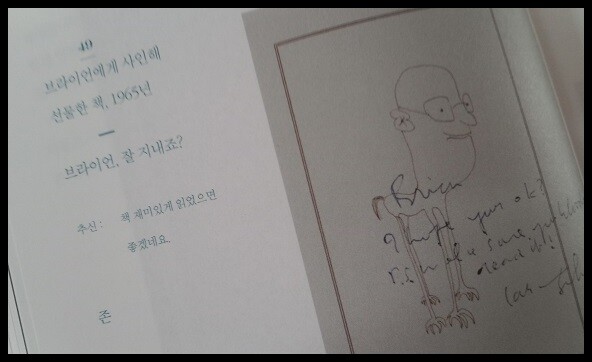 49
브라이언에게 사인해
선물한 책, 1965년
브라이언, 잘 지내죠?
추신: 책 재미있게 읽었으면
좋겠네요.
존
Brian
I hope you ok?